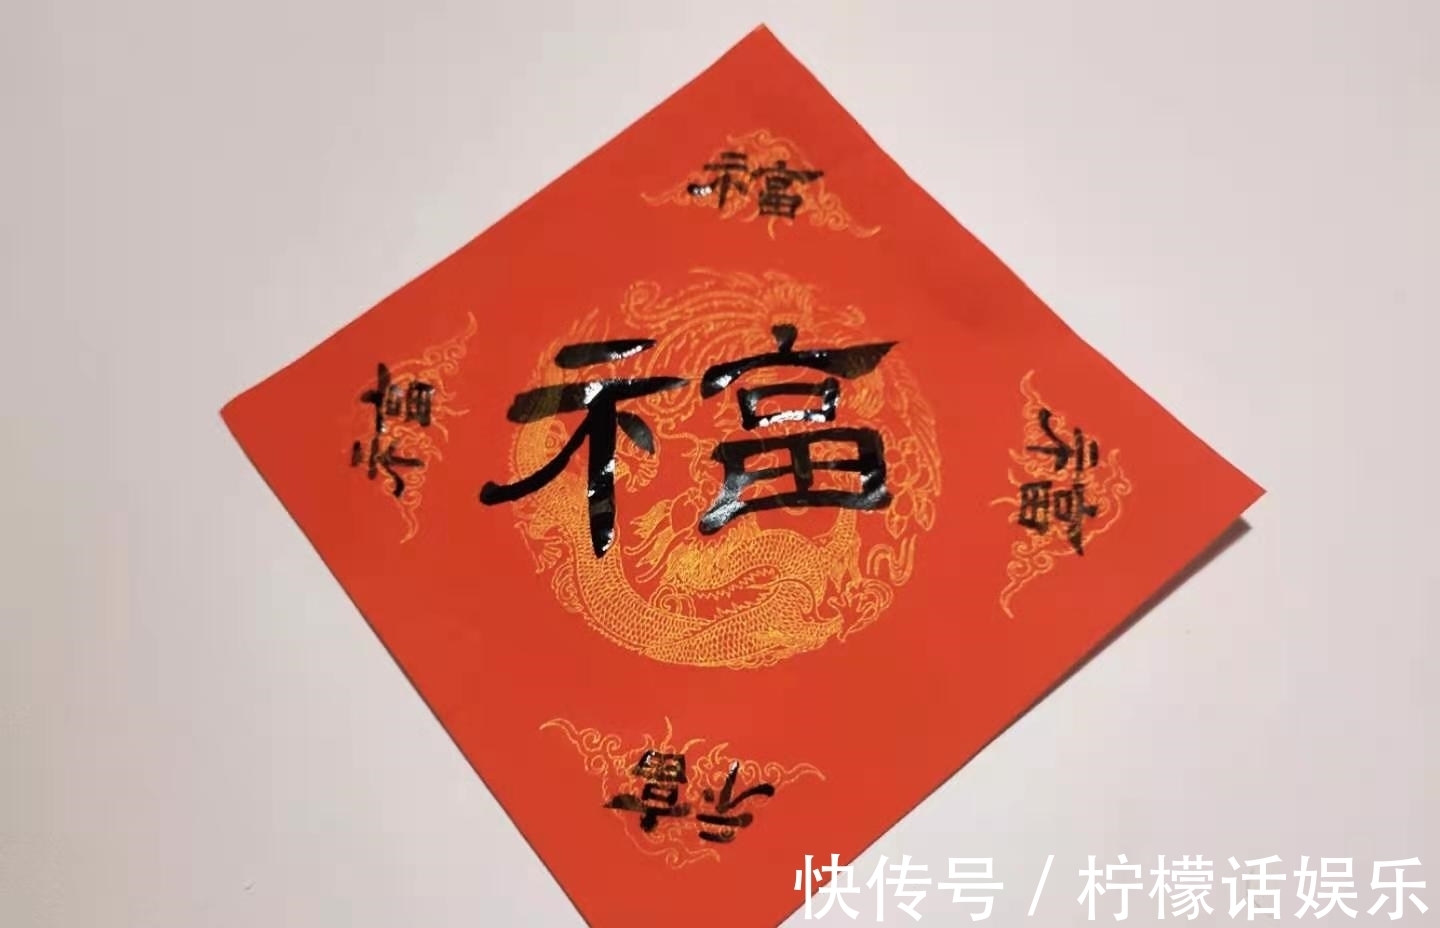 福
福
福
福
福
快传号 / 柠檬话娱乐